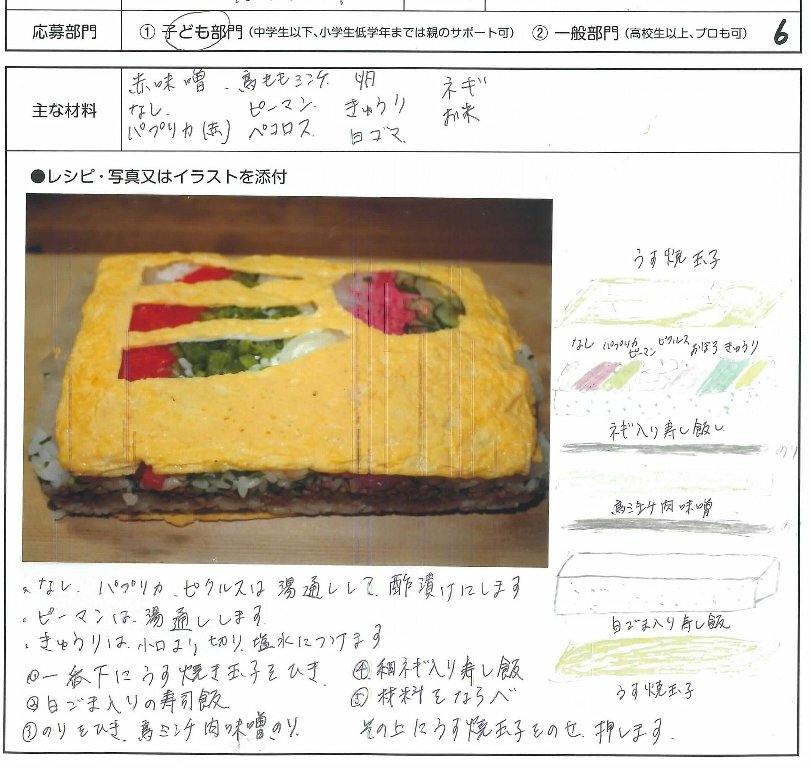 応募部門 ① 子ども部門 (中学生以下、小学生低学年までは親のサポート可) ② 一般部門 (高校生以上、プロも可) 6
主な材料
赤味噌 鳥ももミンチ 卵 ネギ
なし ピーマン きゅうり お米
パプリカ(赤) ペコロス 白ゴマ
●レシピ・写真又はイラストを添付
うす焼玉子
なし パプリカ ピーマン ピクルス おぼろ きゅうり
ネギ入り寿し飯し
のり
鳥ミンチ肉味噌
の
白ごま入り寿し飯
うす焼玉子
・なし、パプリカ、ピクルスは湯通しして酢漬けにします
・ピーマンは、湯通しします
・きゅうりは、小口より切り、塩水につけます
①一番下にうす焼き玉子をひき
②白ごま入りの寿司飯
③のりをひき、鳥ミンチ肉味噌のり
④細ネギ入り寿し飯
⑤材料をならべ
その上にうす焼玉子をのせ、押します。